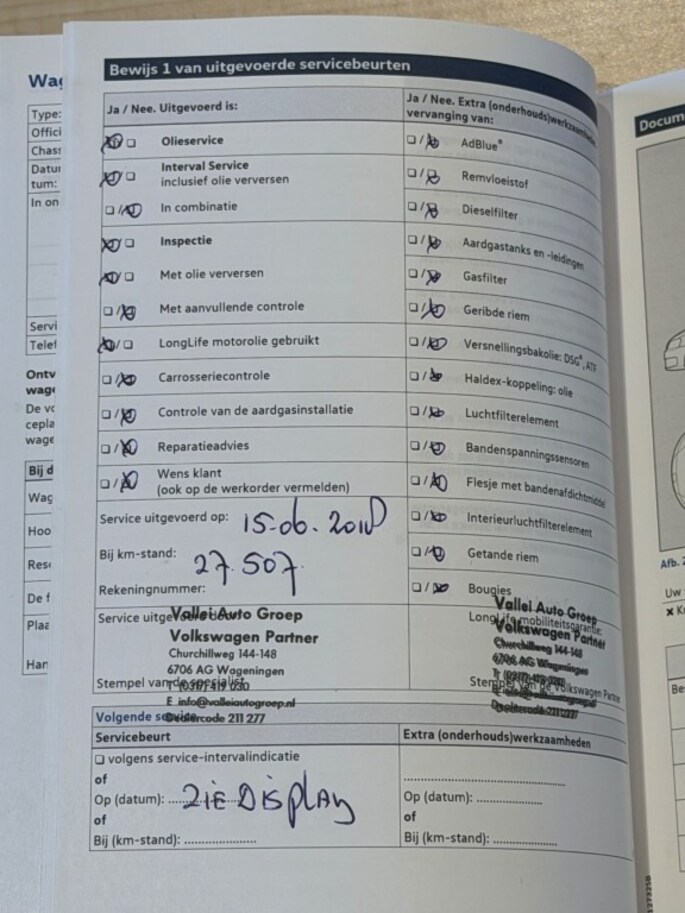 Wag
Type:
Offici
Chass
Datu
tum:
In on
Servi
Telef
Ontv
wage
De vo
cepla
wage
Bij d
Wag
Hoo
Rese
De f
Plaa
Han
Bewijs 1 van uitgevoerde servicebeurten
Ja / Nee. Uitgevoerd is:
Olieservice
Interval Service
inclusief olie verversen
In combinatie
Inspectie
Met olie verversen
Met aanvullende controle
LongLife motorolie gebruikt
Carrosseriecontrole
Controle van de aardgasinstallatie
Reparatieadvies
Wens klant
(ook op de werkorder vermelden)
Service uitgevoerd op: 15-06-2018
Bij km-stand: 27.507
Rekeningnummer:
Ja / Nee. Extra (onderhouds)werkzaamheden
vervanging van:
AdBlue®
Remvloeistof
Dieselfilter
Aardgastanks en -leidingen
Gasfilter
Geribde riem
Versnellingsbakolie: DSG®, ATF
Haldex-koppeling: olie
Luchtfilterelement
Bandenspanningssensoren
Flesje met bandenafdichtmiddel
Interieurluchtfilterelement
Getande riem
Bougies
Service uitgevoerd door:
Vallei Auto Groep
Volkswagen Partner
Churchillweg 144-148
6706 AG Wageningen
T (0317) 419 030
Stempel van de specialist
E info@valleiautogroep.nl
Dealercode 211 277
Vallei Auto Groep
LongLife mobiliteitsgarantie:
Volkswagen Partner
Churchillweg 144-148
6706 AG Wageningen
T (0317) 419 030
Stempel van de Volkswagen Partner
Dealercode 211 277
Volgende service
Servicebeurt
volgens service-intervalindicatie
of
Op (datum): ZIE DISPLAY
of
Bij (km-stand): ....................
Extra (onderhouds)werkzaamheden
Op (datum): ..................
of
Bij (km-stand): ..................
Docum
Afb. 2
Uw
× K
Be